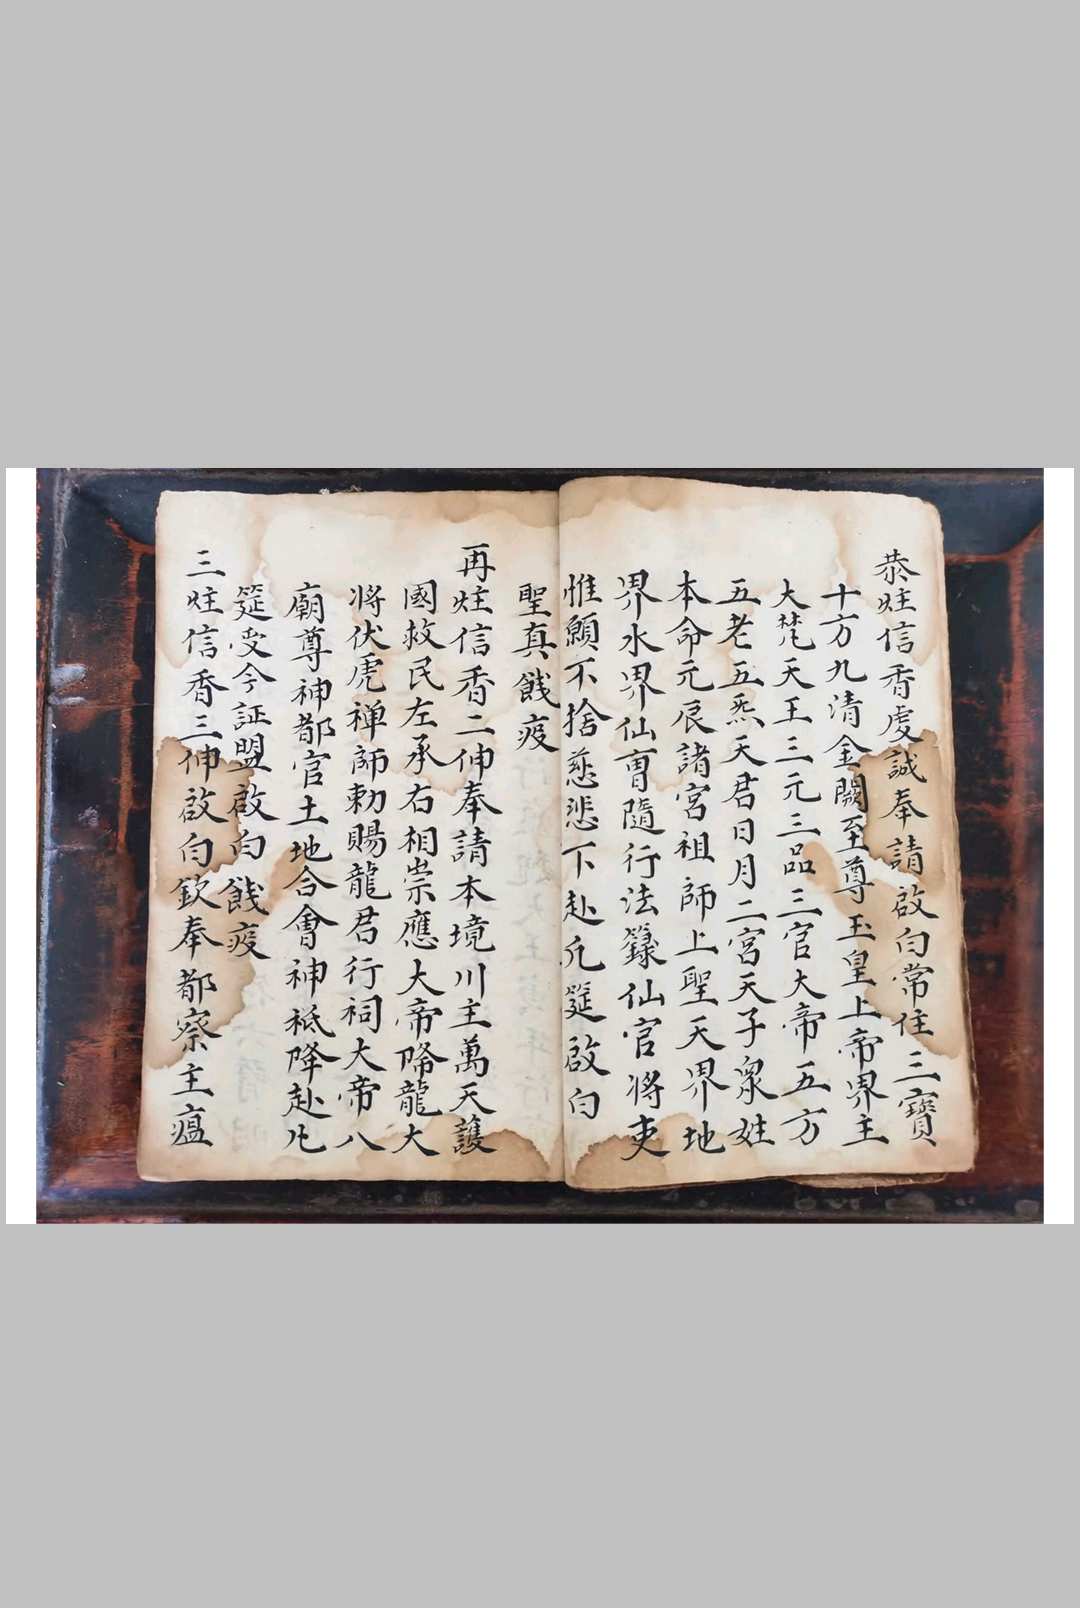 恭炷信香虔誠奉請啟白常住三寶
十方九清金闕至尊玉皇上帝界主
大梵天王三元三品三官大帝五方
五老五炁天君日月二宮天子衆姓
本命元辰諸宮祖師上聖天界地
界水界仙曹隨行法籙仙官将吏
惟願不捨慈悲下赴凢筵啟白
聖真餞疫
再炷信香二伸奉請本境川主萬天護
國救民左承右相崇應大帝降龍大
将伏虎禅師勅賜龍君行祠大帝八
廟尊神都官土地合會神祗降赴凢
筵受今証盟啟白餞疫
三炷信香三伸啟白欽奉都察主瘟